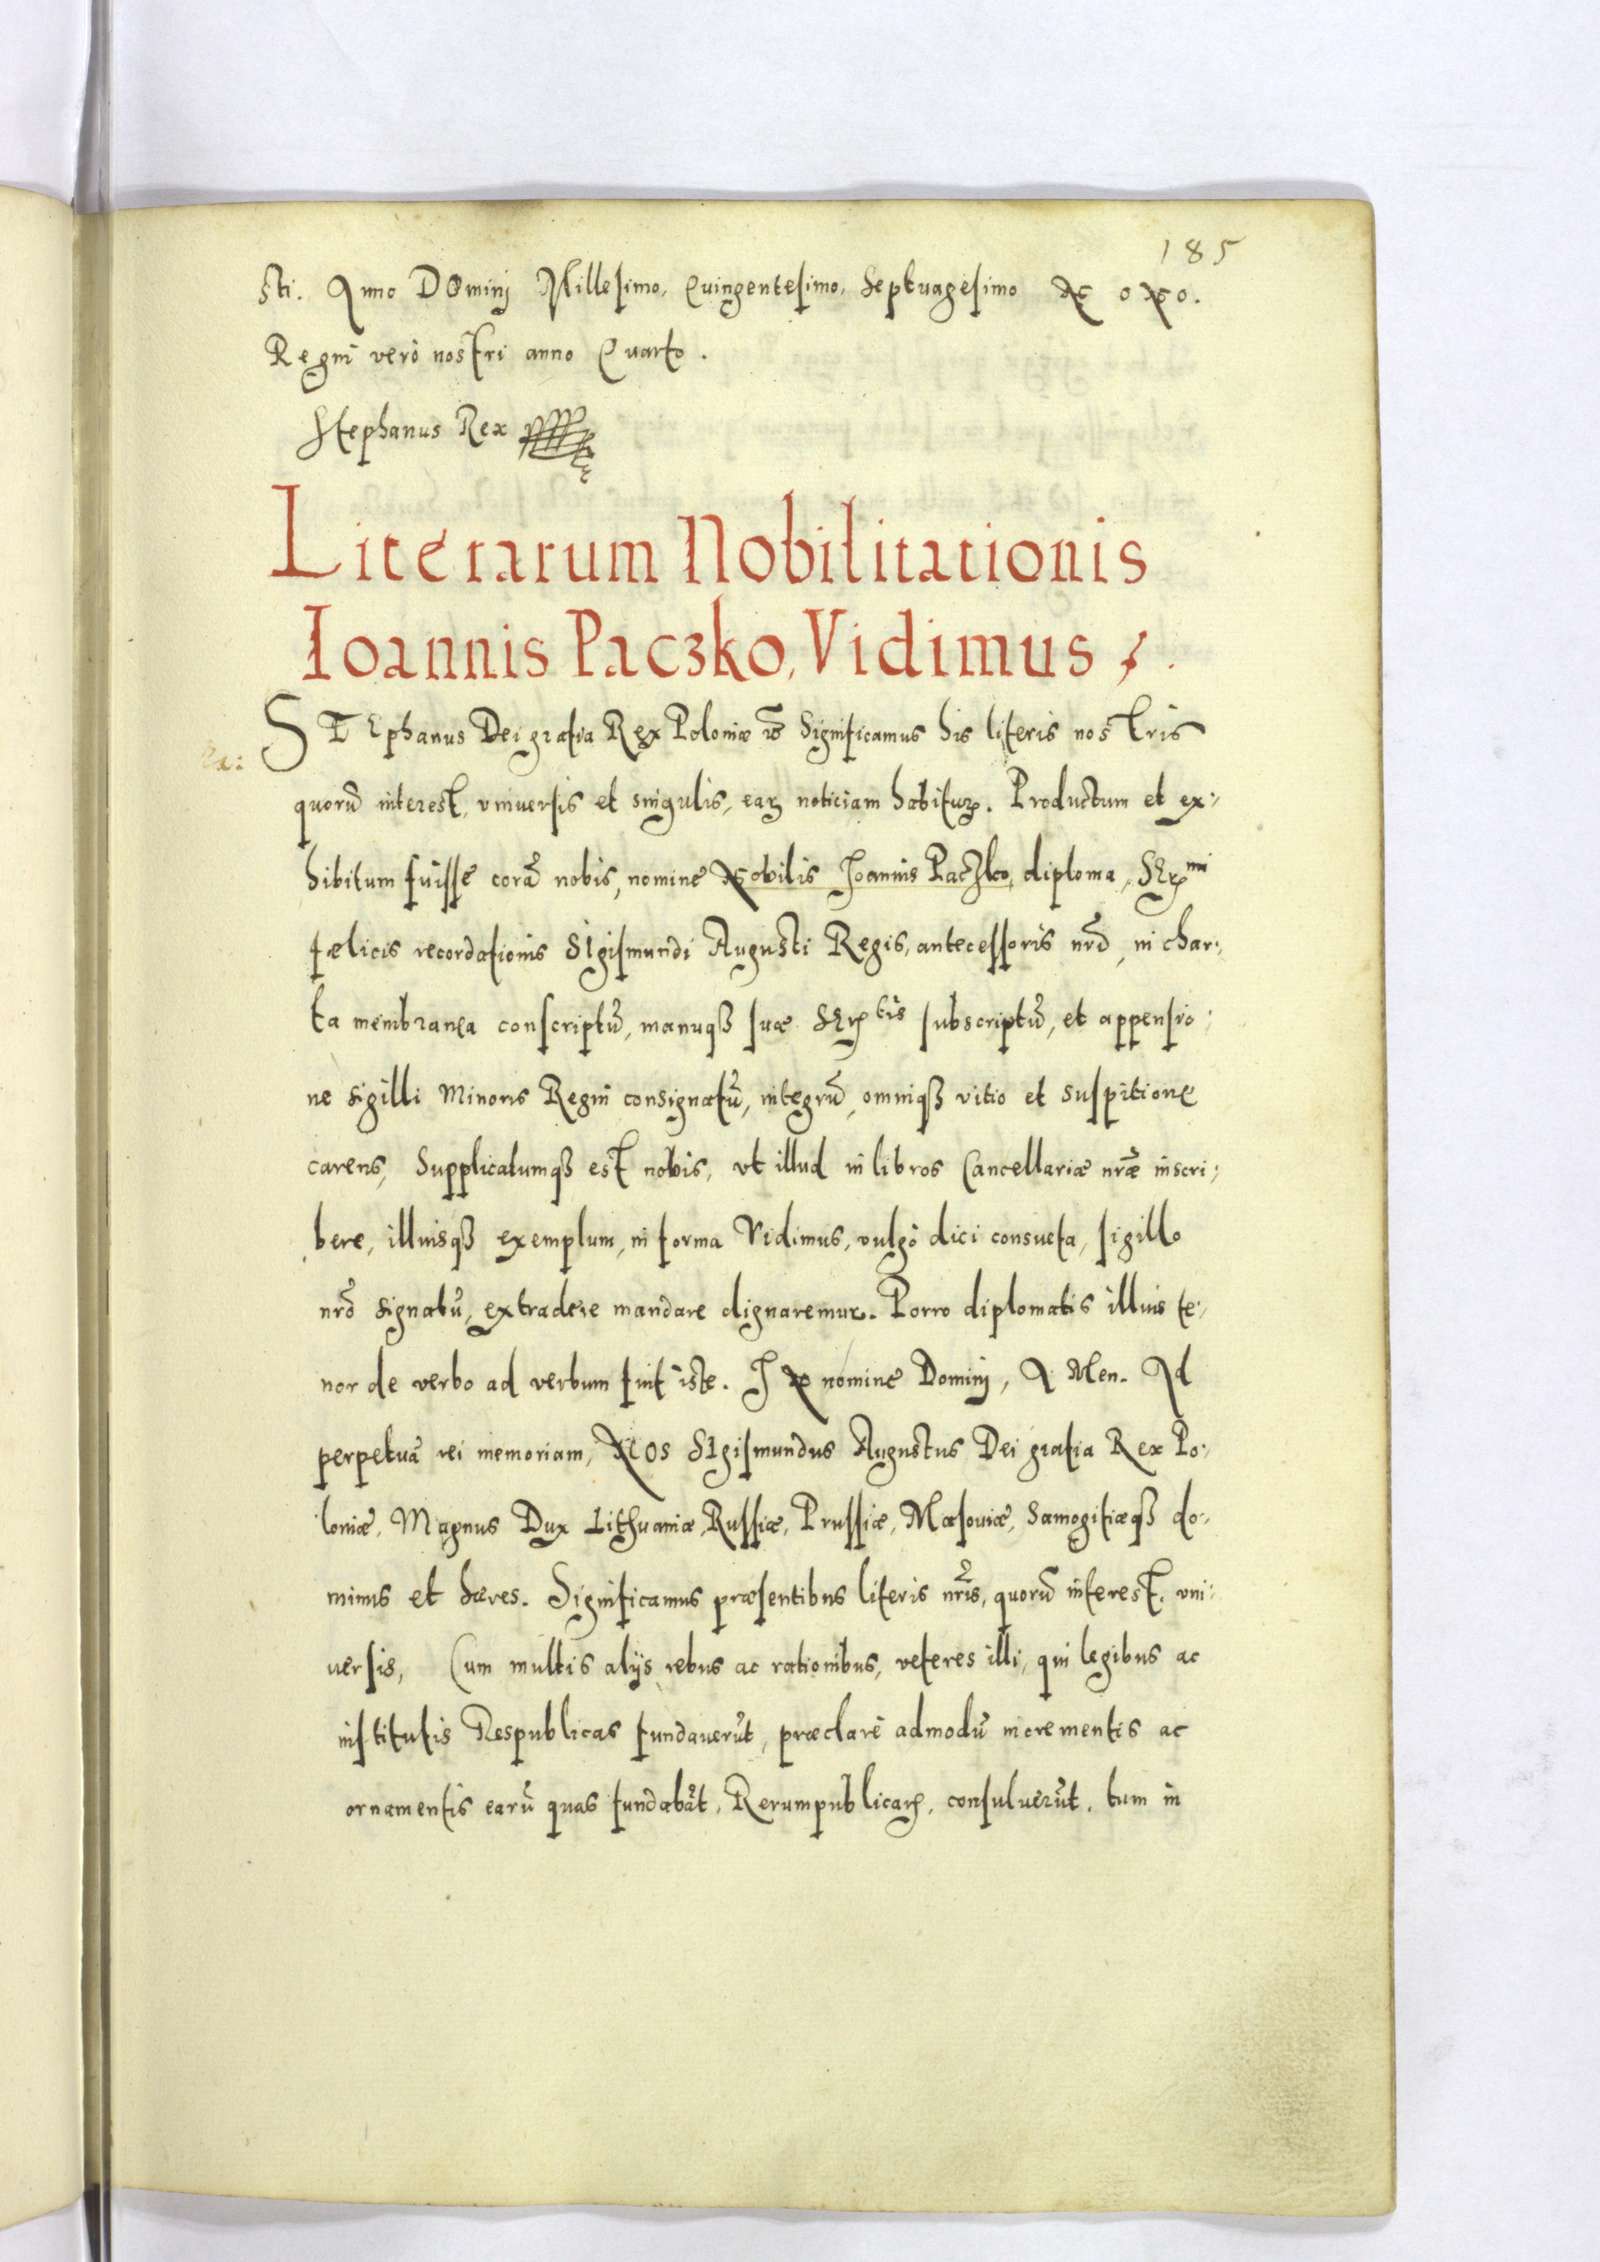 185
sti. Anno DOminj Millesimo, Quingentesimo, Septuagesimo NoNo.
Regni verò nostri anno Quarto.
Stephanus Rex
Literarum Nobilitationis
Ioannis Paczko, Vidimus
STEphanus Dei gratia Rex Poloniæ Significamus his literis nostris
quorū interest, vniuersis et singulis, earꝫ noticiam habiturꝫ. Productum et ex:
hibitum fuisse corā nobis, nomine Nobilis Joannis Paczko, diploma, SRꝫmi
fælicis recordationis SIgismundi Augusti Regis, antecessoris nrō, in char:
ta membranea conscriptū, manuqꝫ suæ SRꝫtis subscriptū, et appensio:
ne sigilli Minoris Regni consignatū, integrū, omniqꝫ vitio et suspitione
carens, Supplicatumqꝫ est nobis, vt illud in libros Cancellariæ nrǣ inscri:
bere, illiusqꝫ exemplum, in forma Vidimus, vulgò dici consueta, sigillo
nrō signatū, extradere mandare dignaremur. Porro diplomatis illius te:
nor de verbo ad verbum fuit iste. IN nomine Dominj, AMen. Ad
perpetuā rei memoriam, NOS SIgismundus Augustus Dei gratia Rex Po:
loniæ, Magnus Dux Lithuaniæ, Russiæ, Prussiæ, Masouiæ, Samogitiæqꝫ do:
minus et hæres. Significamus præsentibus literis nrīs, quorū interest, vni:
uersis, Cum multis alijs rebus ac rationibus, veteres illi, qui legibus ac
institutis Respublicas fundauerūt, præclarè admodū incrementis ac
ornamentis earū quas fundabāt, Rerumpublicarꝫ, consuluerūt, tum in